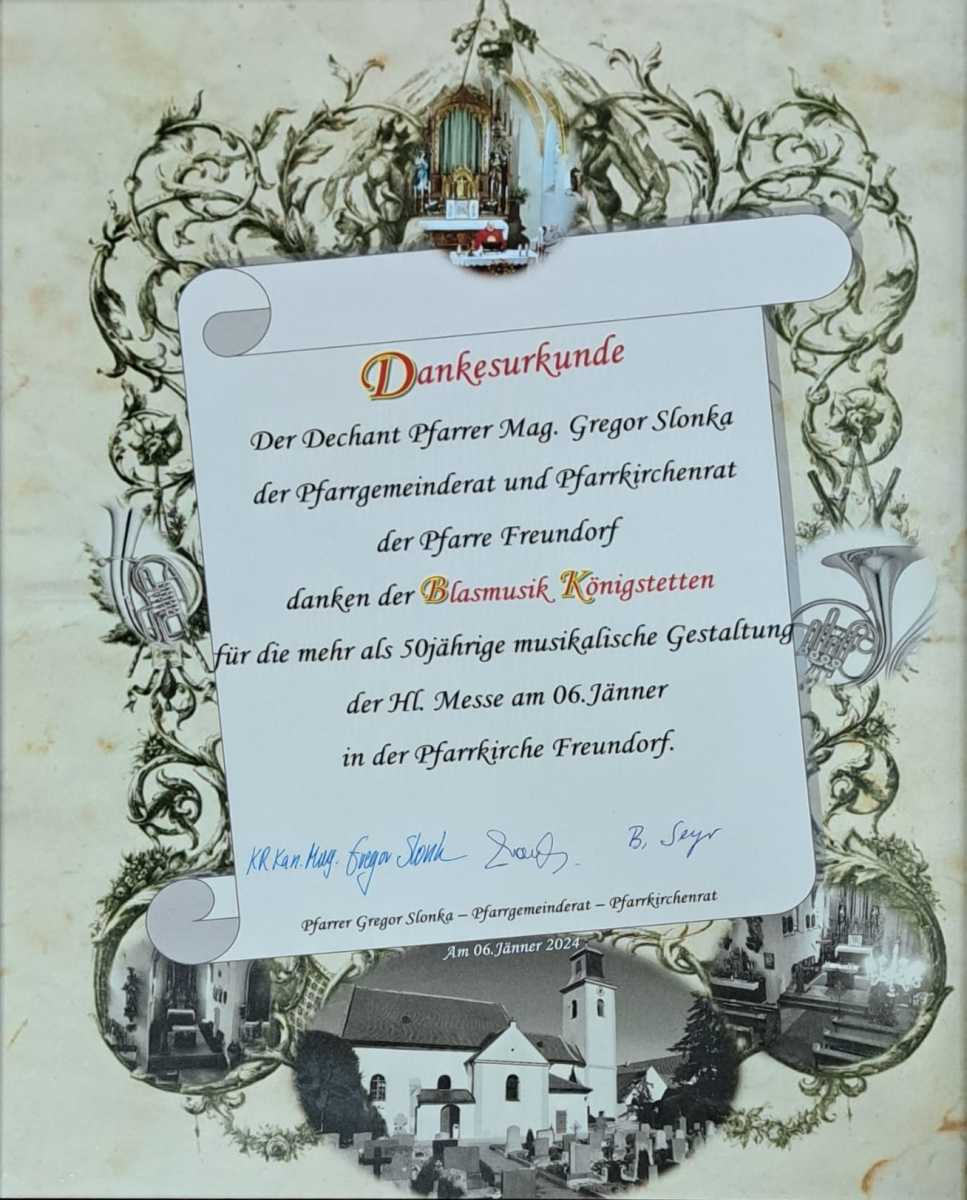 Dankesurkunde
Der Dechant Pfarrer Mag. Gregor Slonka
der Pfarrgemeinderat und Pfarrkirchenrat
der Pfarre Freundorf
danken der Blasmusik Königstetten
für die mehr als 50jährige musikalische Gestaltung
der Hl. Messe am 06.Jänner
in der Pfarrkirche Freundorf.
KR Kan. Mag. Gregor Slonka B. Seyr
Pfarrer Gregor Slonka – Pfarrgemeinderat – Pfarrkirchenrat
Am 06.Jänner 2024